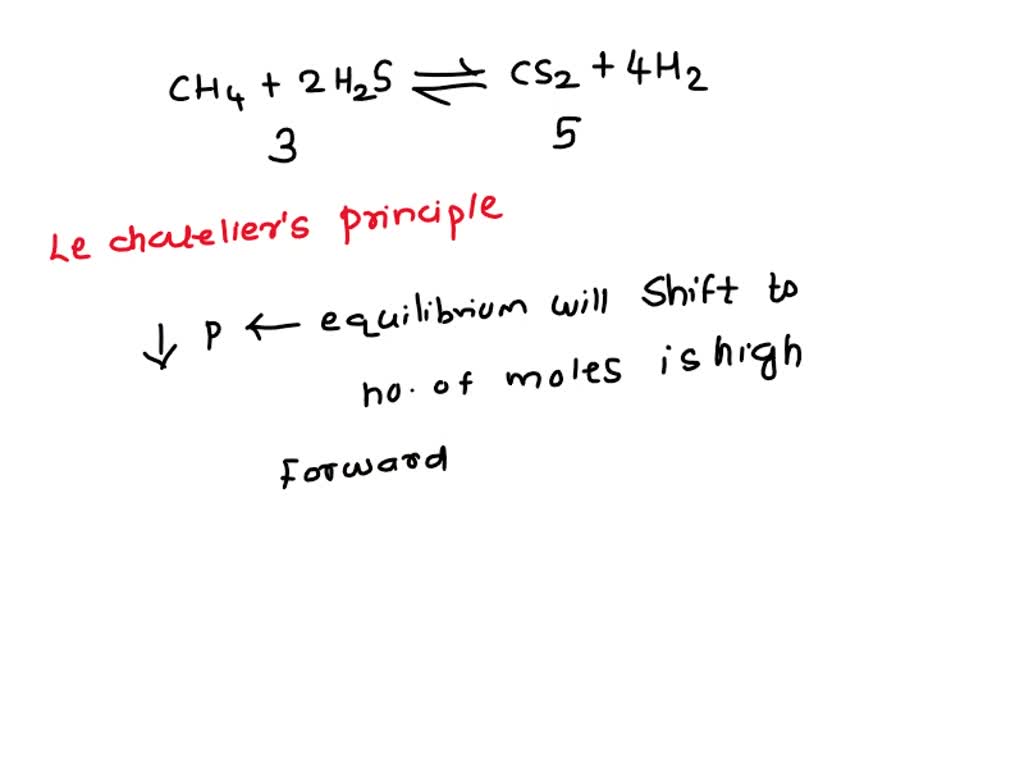 CH₄ + 2H₂S ⇌ CS₂ + 4H₂
3 5
Le chatelier's principle
↓ P ← equilibrium will shift to
no. of moles is high
Forward